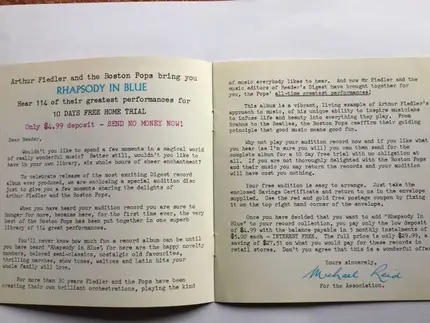 Arthur Fiedler and the Boston Pops bring you
RHAPSODY IN BLUE
Hear 114 of their greatest performances for
10 DAYS FREE HOME TRIAL
Only $4.99 deposit - SEND NO MONEY NOW!
Dear Reader,
Wouldn't you like to spend a few moments in a magical world
of really wonderful music? Better still, wouldn't you like to
have in your own library, six whole hours of sheer enchantment?
To celebrate release of the most exciting Digest record
album ever produced, we are enclosing a special audition disc
just to give you a few moments sharing the delights of
Arthur Fiedler and the Boston Pops.
When you have heard your audition record you are sure to
hunger for more, because here, for the first time ever, the very
best of the Boston Pops has been put together in one superb
library of 114 great performances.
You'll never know how much fun a record album can be until
you have heard "Rhapsody in Blue" for here are the happy novelty
numbers, beloved semi-classics, nostalgic old favourites,
thrilling marches, show tunes, waltzes and latin hits your
whole family will love.
For more than 30 years Fiedler and the Pops have been
creating their own brilliant orchestrations, playing the kind
of music everybody likes to hear. And now Mr Fiedler and the
music editors of Reader's Digest have brought together for
you, the Pops' all-time greatest performances!
This album is a vibrant, living example of Arthur Fiedler's
approach to music, of his unique ability to inspire musicians
to infuse life and beauty into everything they play. From
Brahms to the Beatles, the Boston Pops reaffirm their guiding
principle that good music means good fun.
Why not play your audition record now and if you like what
you hear (as I'm sure you will) you can then send for the
complete album for a 10 day free trial with no obligation at
all. If you are not thoroughly delighted with the Boston Pops
and their music you may return the records and your audition
will have cost you nothing.
Your free audition is easy to arrange. Just take the
enclosed Savings Certificate and return to us in the envelope
supplied. Use the red and gold free postage coupon by fixing
it on the top right hand corner of the envelope.
Once you have decided that you want to add "Rhapsody In
Blue" to your record collection, you pay only the low deposit
of $4.99 with the balance payable in 5 monthly instalments of
$5.00 each - INTEREST FREE. The full price is only $29.99, a
saving of $27.51 on what you would pay for these records in
retail stores. Don't you agree that this is a wonderful offer
Yours sincerely,
Michael Reid
For the Association.